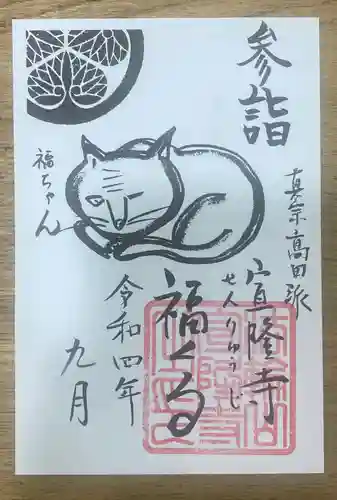 参詣
真宗高田派
宣隆寺
せんりゅうじ
福くる
令和四年
九月
福ちゃん